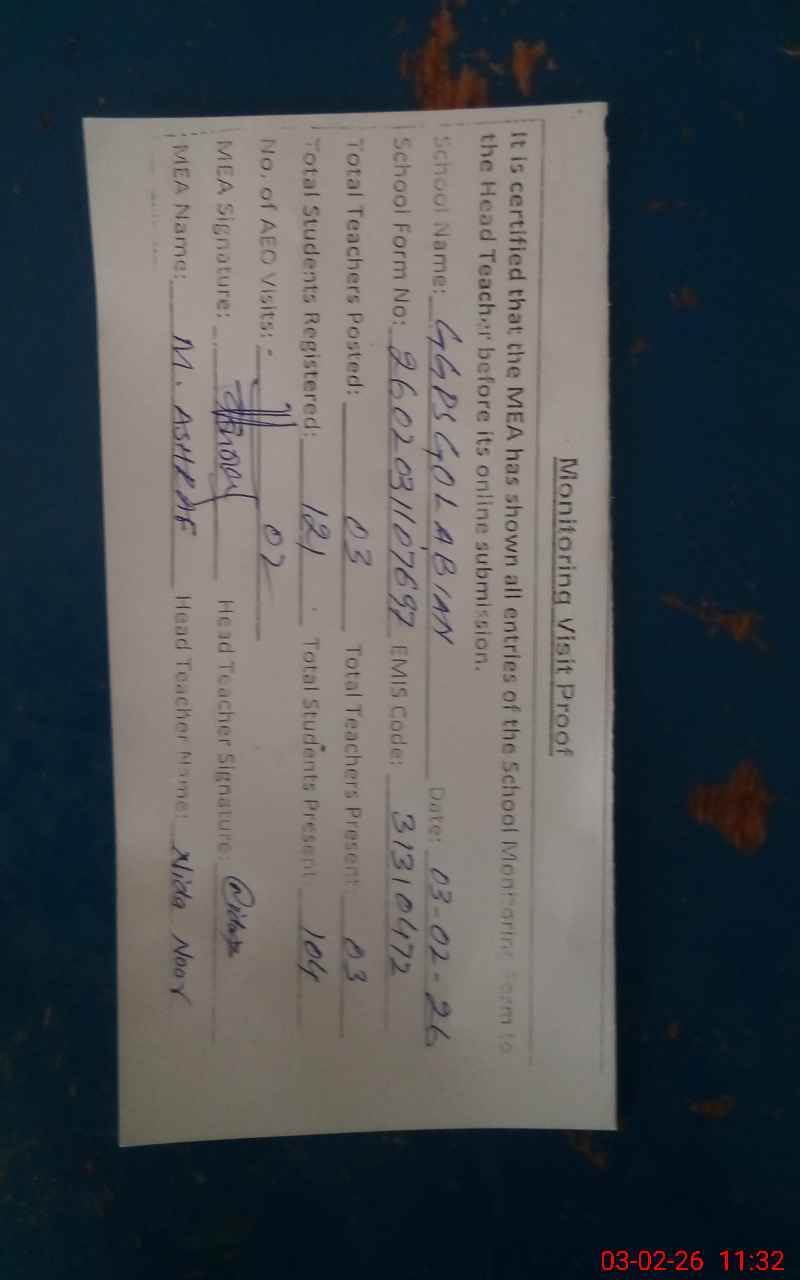 Monitoring Visit Proof
It is certified that the MEA has shown all entries of the School Monitoring Form to
the Head Teacher before its online submission.
School Name: GGPS GOLABIAN Date: 03-02-26
School Form No: 2602031107697 EMIS Code: 31310472
Total Teachers Posted: 03 Total Teachers Present: 03
Total Students Registered: 121 Total Students Present 104
No. of AEO Visits: 02
MEA Signature: Head Teacher Signature:
MEA Name: M. ASHRAF Head Teacher Name: Nida Noor
03-02-26 11:32